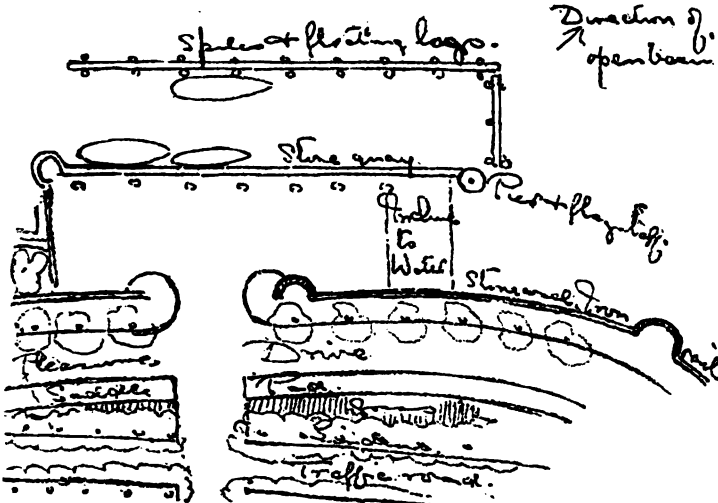 Spiles & floating logs.
Direction of
open
Stone quay
Pier & flagstaff.
Incline
to
Water
Stone and Iron
rail
Pleasure Drive
Saddle Pad.
Gardens
Traffic road.